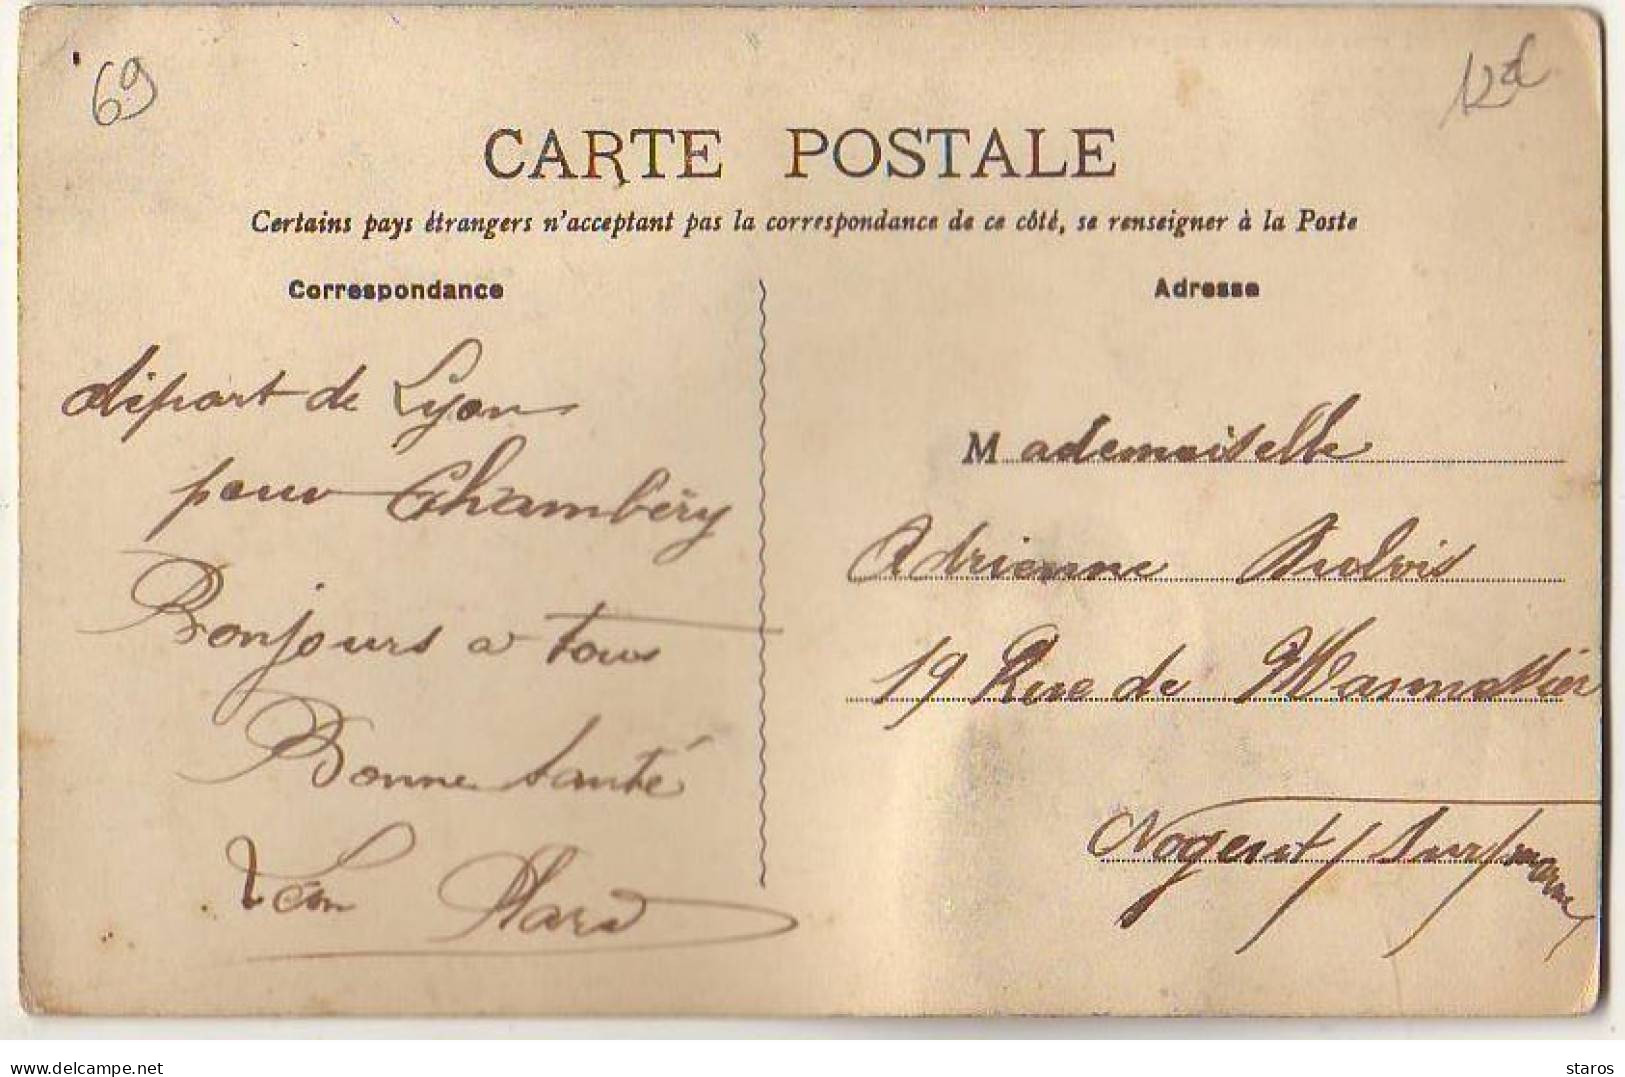 69
CARTE POSTALE
Certains pays étrangers n'acceptant pas la correspondance de ce côté, se renseigner à la Poste
Correspondance
départ de Lyon
pour Chambéry
Bonjours a tous
Bonne Santé
Léon
Adresse
Mademoiselle
Adrienne Dubois
19 Rue de
Nogent / Sur / marne
delcampe.net
staros